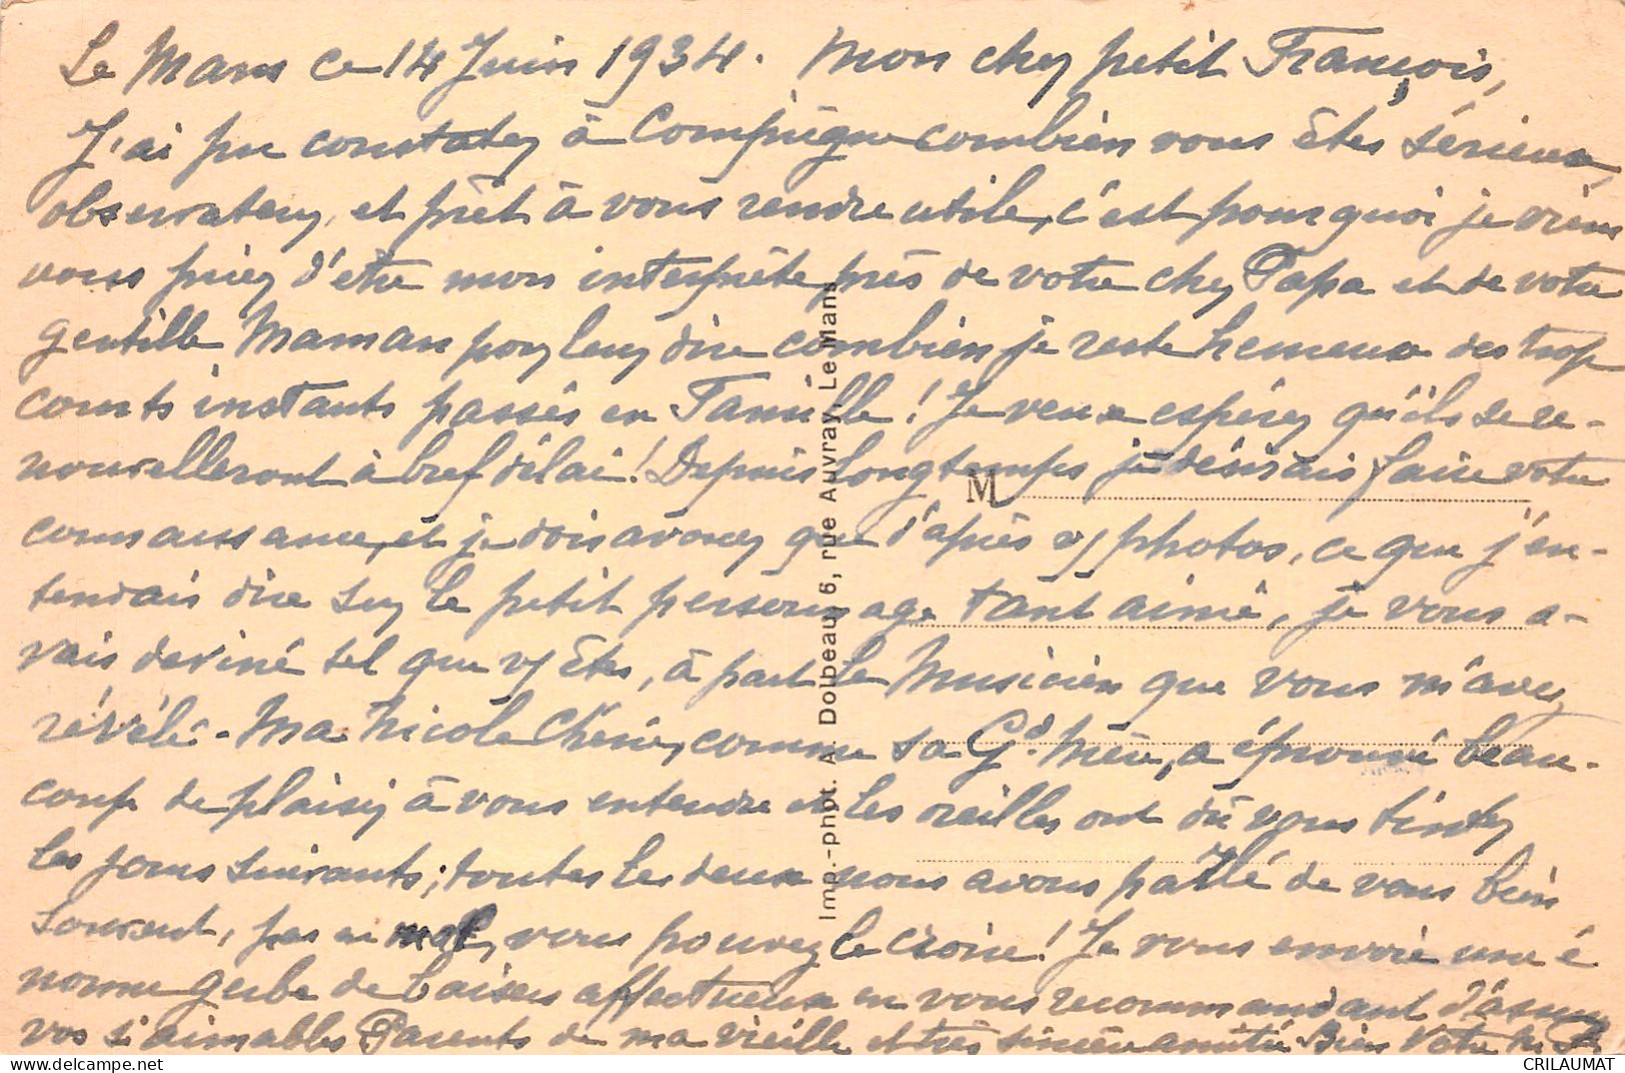 Le Mans ce 14 Juin 1934. Mon cher petit François,
J'ai pu constater à Compiègne combien vous êtes sérieux,
observateur, et prêt à vous rendre utile, c'est pourquoi je viens
vous prier d'être mon interprète près de votre cher Papa et de votre
gentille Maman pour leur dire combien je reste heureux des trop
courts instants passés en Famille ! Je veux espérer qu'ils se re-
nouvelleront à bref délai ! Depuis longtemps je désirais faire votre
connaissance, et je dois avouer que d'après vs photos, ce que j'en-
tendais dire sur le petit personnage tant aimé, je vous a-
vais deviné tel que vs êtes, à part le musicien que vous m'avez
révélé - Ma Nicole Chérie, comme sa Gd. Mère, a éprouvé beau-
coup de plaisir à vous entendre et les oreilles ont dû vous tinter
les jours suivants ; toutes les deux nous avons parlé de vous bien
souvent, pas en mal, vous pouvez le croire ! Je vous envoie une é-
norme gerbe de baisers affectueux en vous recommandant d'assurer
vos si aimables Parents de ma vieille et très sincère amitié. Bien Votre
M
Imp.-phpt. A. Dolbeau, 6, rue Auvray, Le Mans
CRILAUMAT
delcampe.net